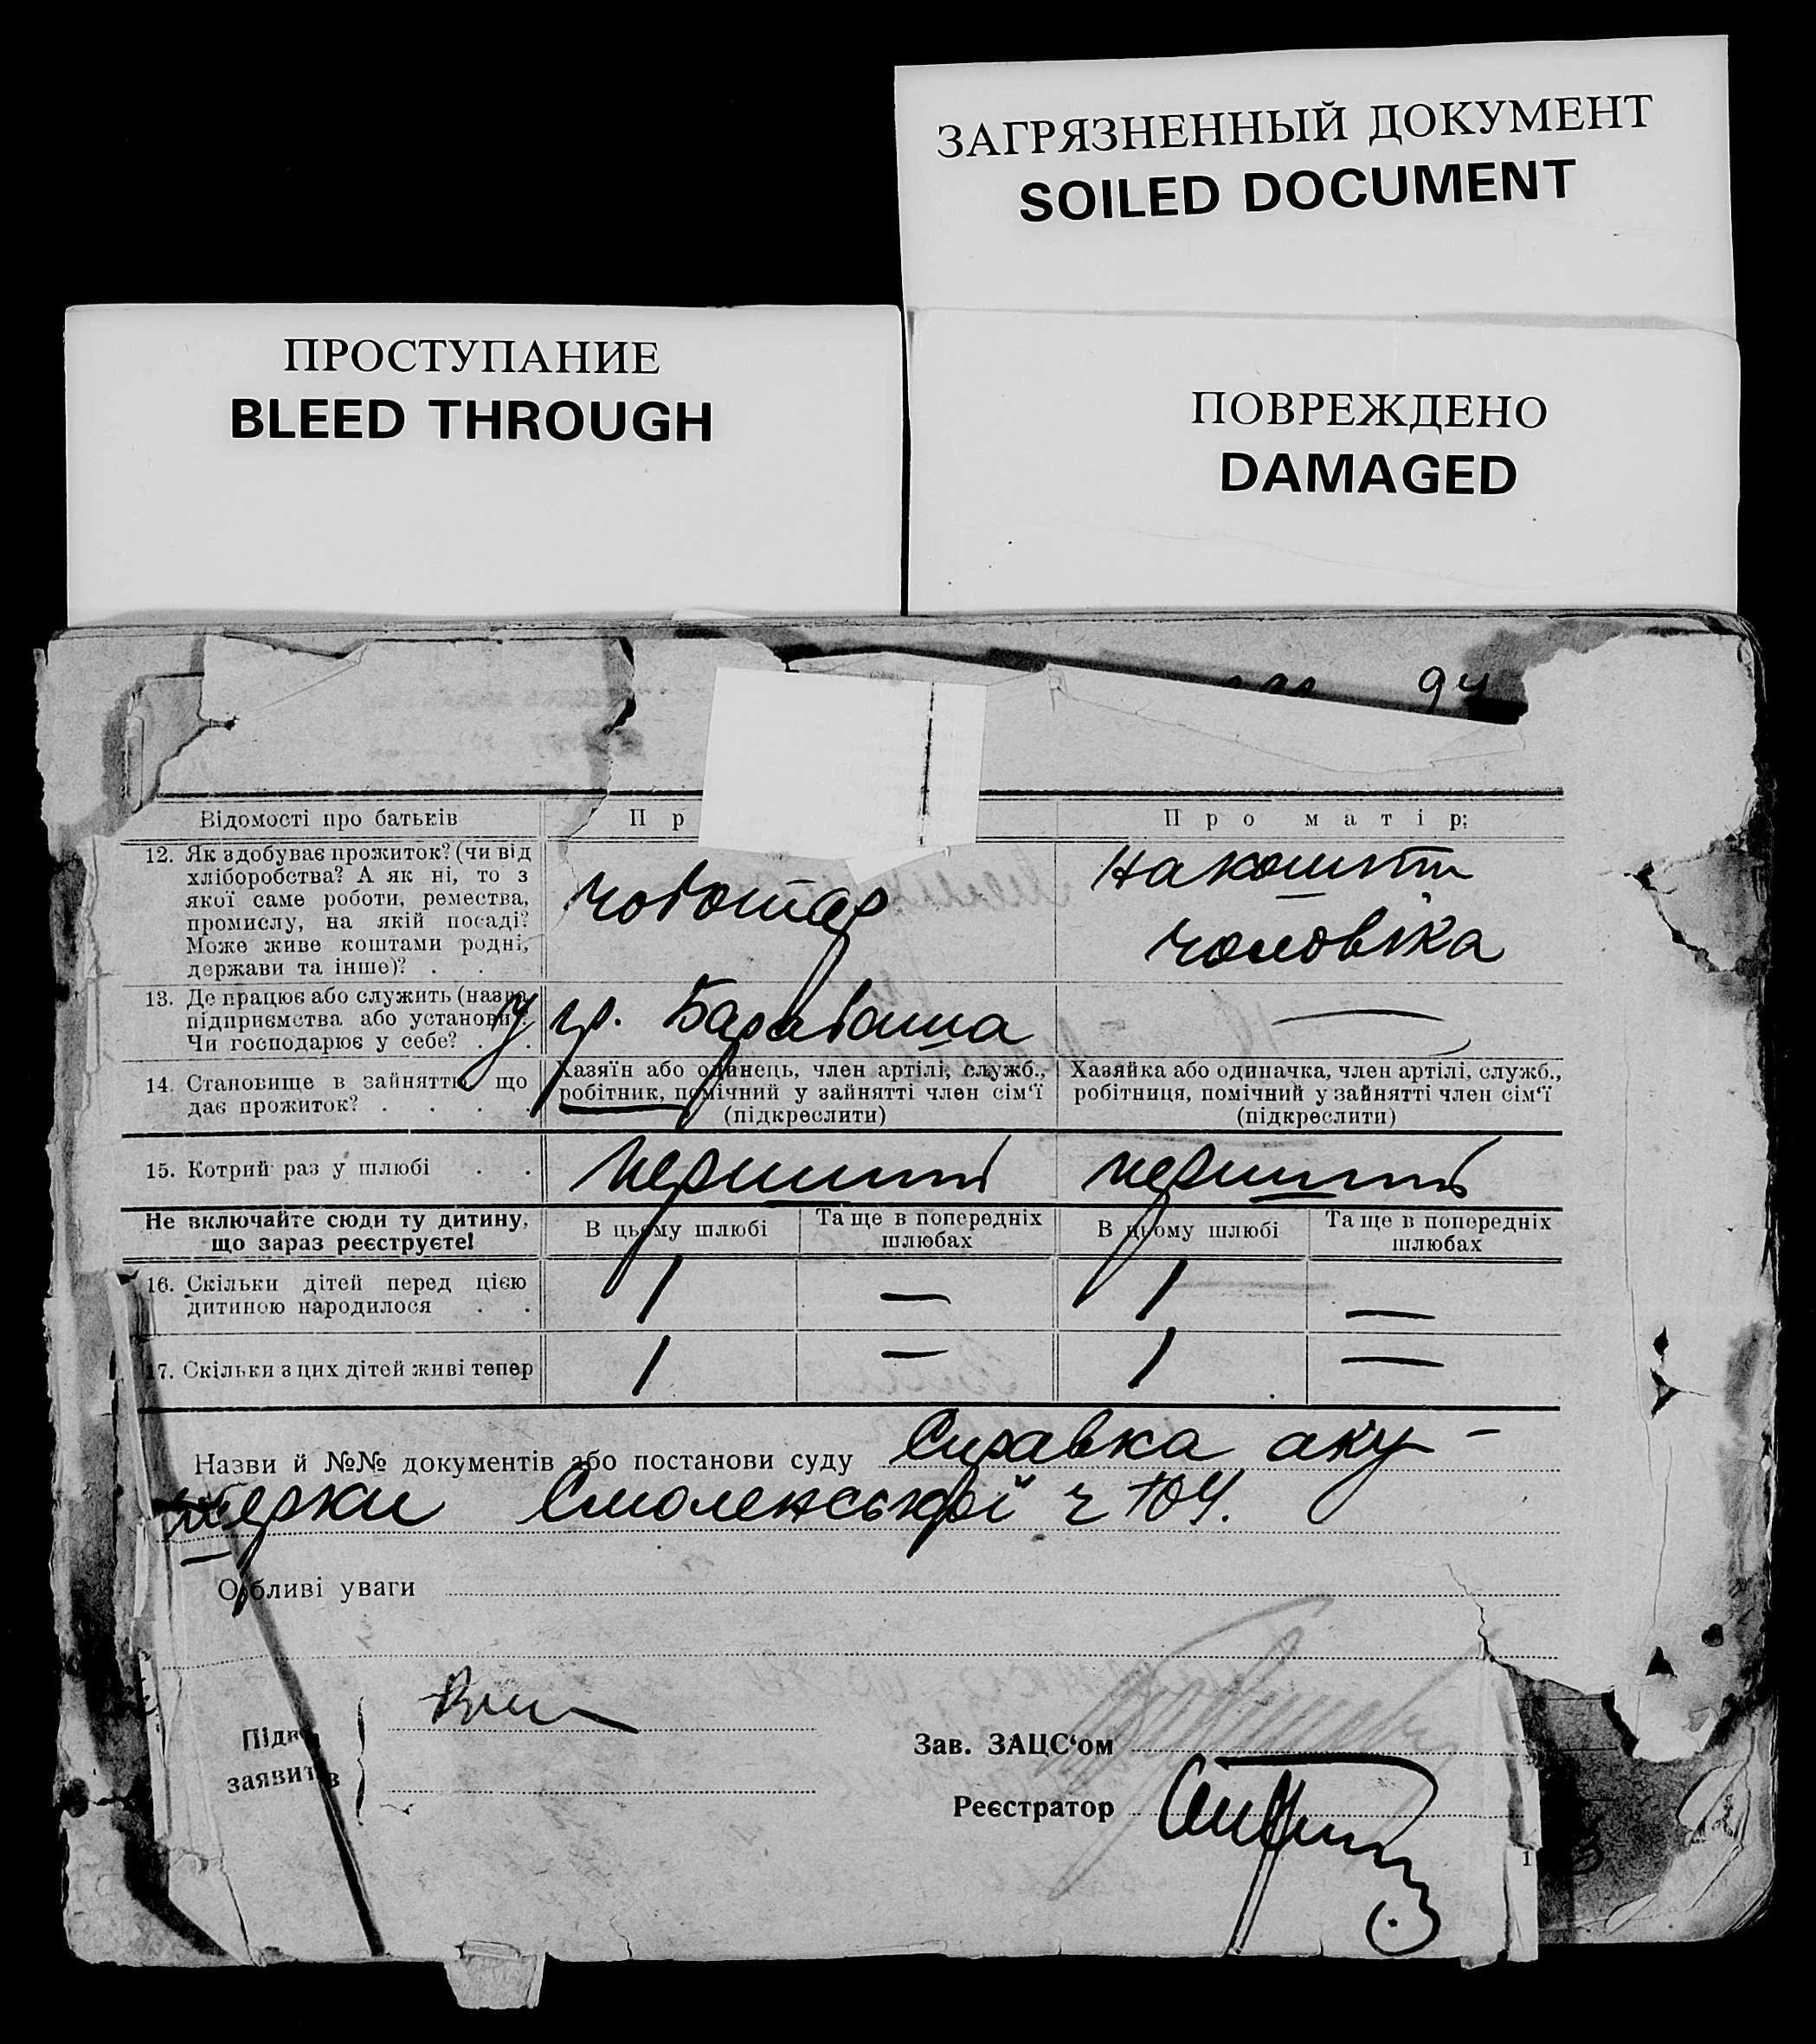 ЗАГРЯЗНЕННЫЙ ДОКУМЕНТ
SOILED DOCUMENT
ПРОСТУПАНИЕ
BLEED THROUGH
ПОВРЕЖДЕНО
DAMAGED
94
Відомості про батьків
П р
Про матір:
12. Як здобуває прожиток? (чи від
хліборобства? А як ні, то з
якої саме роботи, ремества,
промислу, на якій посаді?
Може живе коштами родні,
держави та інше)? . .
чоботар
на кошти
чоловіка
13. Де працює або служить (назва
підприємства або установи)?
Чи господарює у себе? . .
у гр. Барабаша
—
14. Становище в занятті, що
дає прожиток? . . . .
Хазяїн або одинець, член артілі, служб.,
робітник, помічний у зайнятті член сім‘ї
(підкреслити)
Хазяйка або одиначка, член артілі, служб.,
робітниця, помічний у зайнятті член сім‘ї
(підкреслити)
15. Котрий раз у шлюбі . .
перший
перший
Не включайте сюди ту дитину,
що зараз реєструєте!
В цьому шлюбі
Та ще в попередніх
шлюбах
В цьому шлюбі
Та ще в попередніх
шлюбах
16. Скільки дітей перед цією
дитиною народилося . .
1 — 1 —
17. Скільки з цих дітей живі тепер
1 — 1 —
Назви й №№ документів або постанови суду Справка аку-
шерки Смоленської ч 104.
Особливі уваги
Зав. ЗАЦС‘ом
заявит в
Реєстратор
1